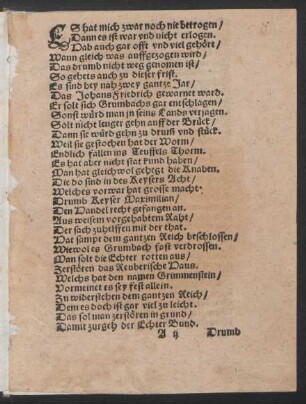 ES hat mich zwar noch nie betrogen/
Dann es ist war vnd nicht erlogen.
Hab auch gar offt vnd viel gehört/
Wann gleich was auffgezogen wird/
Das drumb nicht weg genomen ist/
So gehets auch zu dieser frist.
Es sind bey nah zwey gantze Jar/
Das Johans Friedrich gewarnet ward.
Er solt sich Grumbachs gar entschlagen/
Sonst würd man jn seins Lands verjagen.
Solt nicht lenger gehn auff der Brück/
Dann sie würd gehn zu druß vnd stück.
Weil sie gestochen hat der Worm/
Endlich fallen ins Teuffels Thorm.
Es hat aber nicht stat fund haben/
Man hat gleichwol gehegt die Knaben.
Die do sind in des Keysers Acht/
Welches vorwar hat grosse macht.
Drumb Keyser Maximilian/
Den Handel recht gefangen an.
Aus weisem vorgehabtem Raht/
Der sach zuhelffen mit der that.
Hat sampt dem gantzen Reich beschlossen/
Wiewol es Grumbach fast verdrossen.
Man solt die Echter rotten aus/
Zerstören das Reubersche Haus.
Welchs hat den namen Grimmenstein/
Vormeinet es sey fest allein.
Zu widerstehen dem gantzen Reich/
Dem es doch ist gar viel zu leicht.
Das sol man zerstören in grund/
Damit zurgeh der Echter Bund.
A ij Drumb